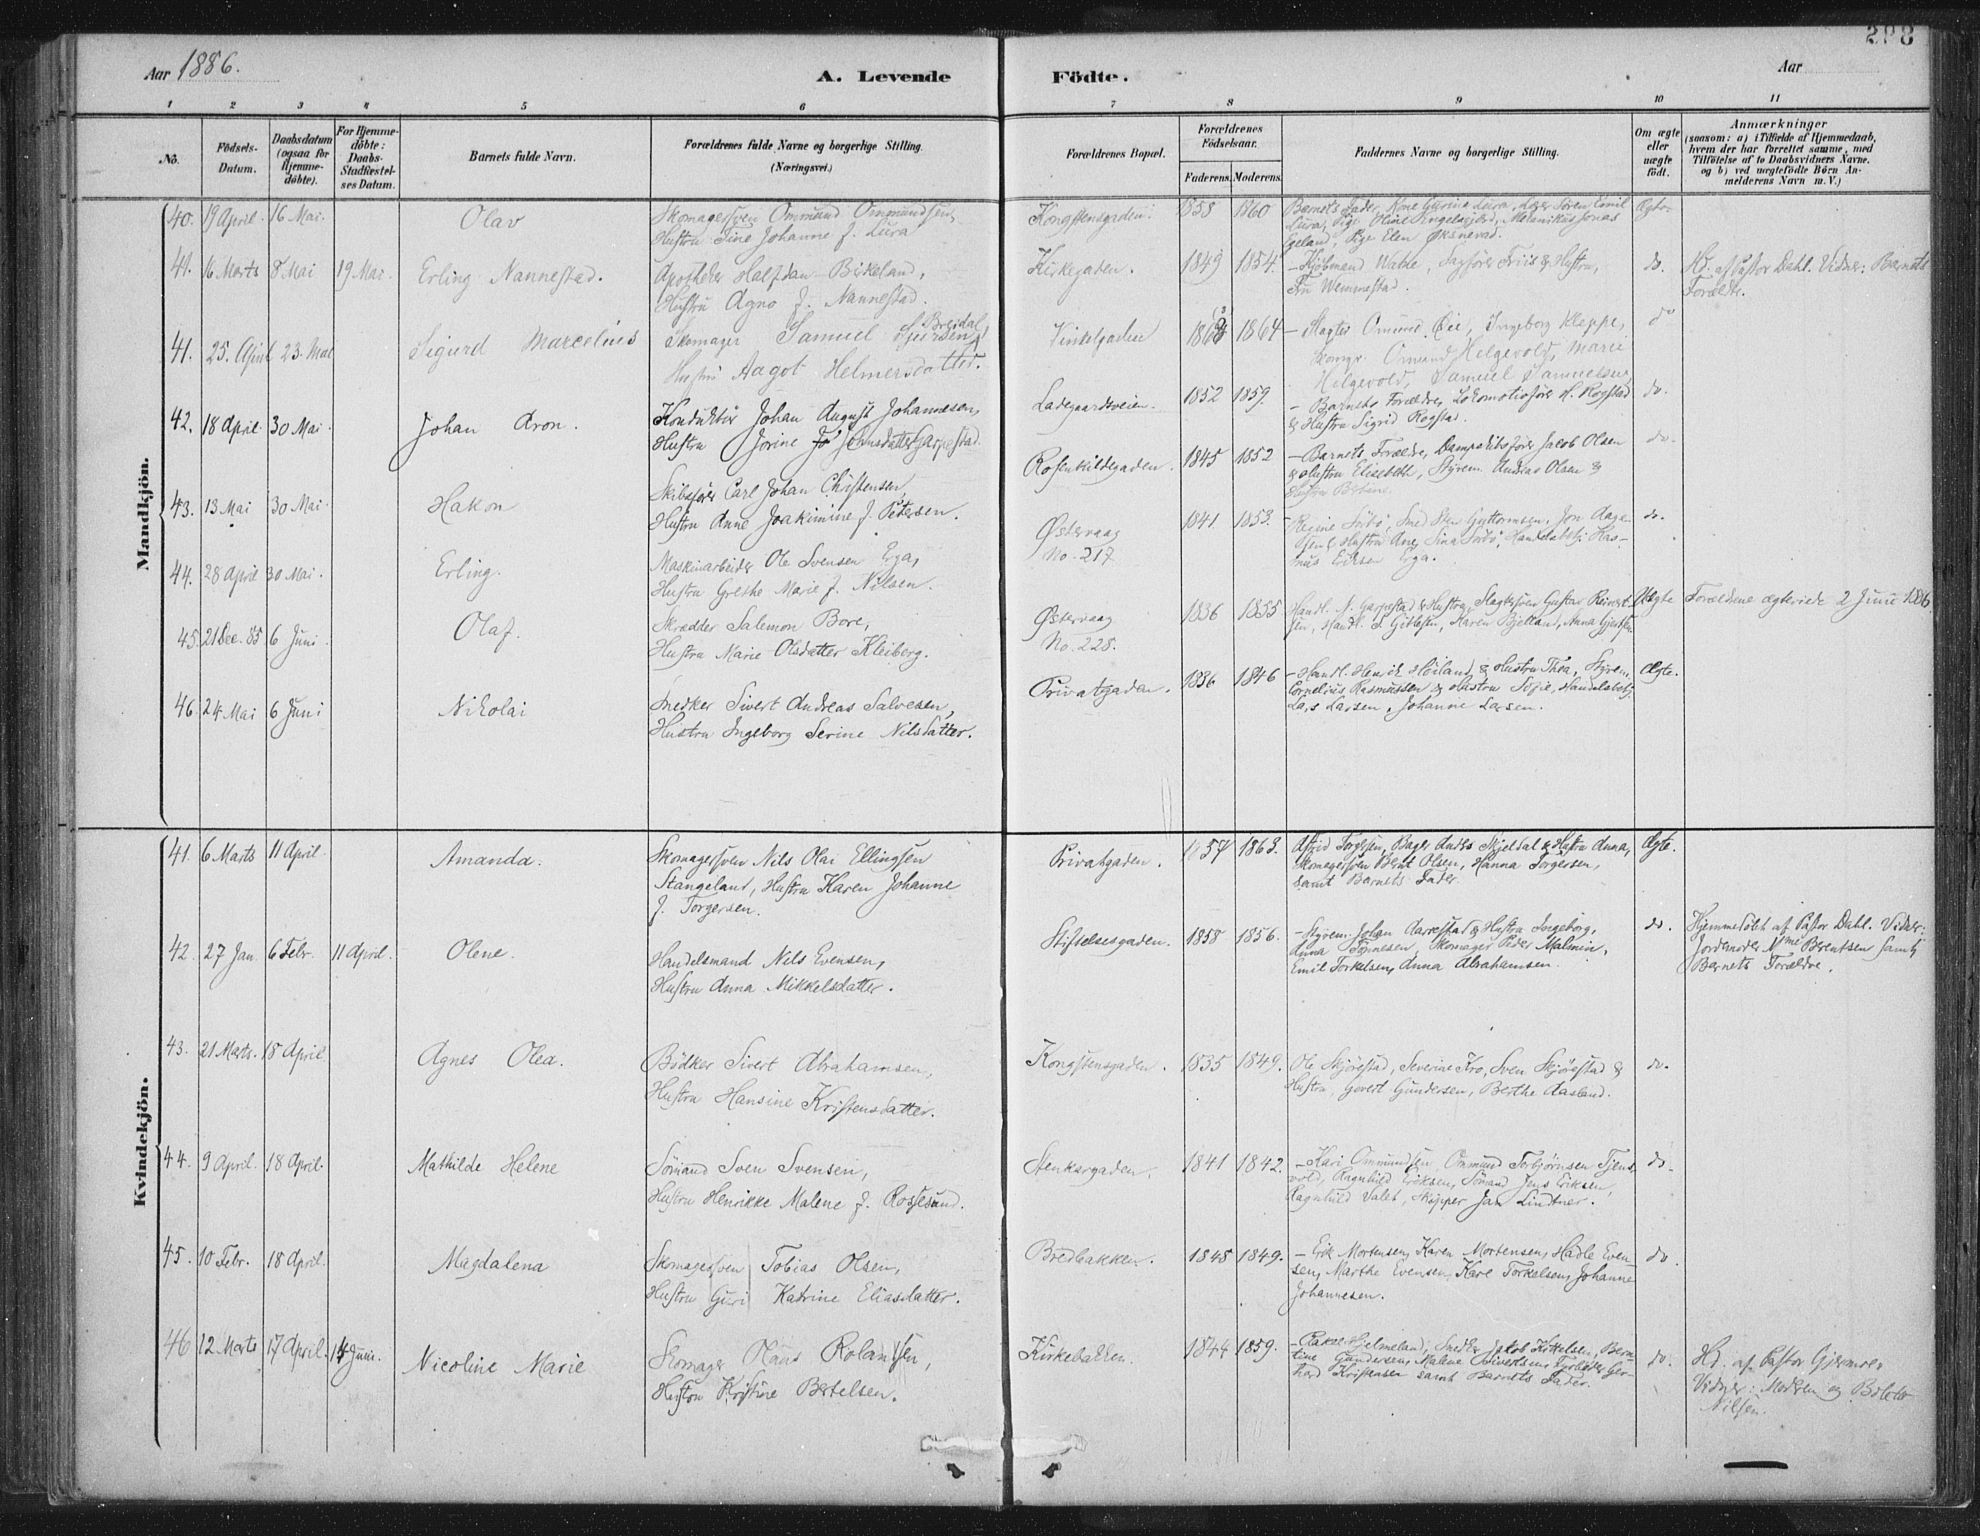 Aar 1886.
A. Levende
Födte.
Aar
298
1 2 3 4 5 6 7 8 9 10 11
No.
Födsels-
Datum.
Daabsdatum
(ogsaa for
Hjemme-
döbte).
For Hjemme-
döbte:
Daabs-
Stadfæstel-
ses Datum.
Barnets fulde Navn.
Forældrenes fulde Navne og borgerlige Stilling.
(Næringsvei.)
Forældrenes Bopæl.
Forældrenes
Födselsaar.
Faderens. Moderens.
Faddernes Navne og borgerlige Stilling.
Om ægte
eller
uægte
födt.
Anmærkninger
(saasom: a) i Tilfælde af Hjemmedaab,
hvem der har forrettet samme, med
Tilföielse af to Daabsvidners Navne.
og b) ved uægtefödte Börn An-
melderens Navn m. V.)
Mandkjön.
40. 19 April. 16 Mai. Olav
Skomagersven Ommund Ommundsen,
Hustru Tine Johanne f. Lura
Kongstensgaden. 1858 1860
Barnets Fader, Kone Gurine Lura, Søren Emil
Lura, Pige Oline Engelsgjerd, Jonas
Egeland, Pige Elen Øksnevad.
Ægte.
41. 16 Marts 8 Mai 19 Mai. Erling Nannestad.
Apotheker Halfdan Birkeland,
Hustru Agno f. Nannestad.
Kirkegaden. 1849 1854.
– Kjøbmand Watne, Sagfører Friis & Hustru,
Fru Wemmestad.
do.
Hd. af Pastor Dahl. Vidner: Barnets
Forældre.
41. 25. April 23. Mai Sigurd Marcelius
Skomager Samuel Breidal,
Hustru Aagot Helmersdotter.
Vinkelgaden 1864
– Slagter Omund Øie, Ingeborg Kleppe,
Skomgr. Omund Helgevold, Marie
Helgevold, Samuel Samuelsen
do
42. 18 April. 30 Mai. Johan Aron.
Konduktør Johan August Johannesen,
Hustru Jorine Johnsdatter Garpestad.
Ladegaardsveien. 1852 1859.
– Barnets Forældre, Lokomotivfører H. Rogstad
& Hustru Sigrid Rogstad.
do.
43. 13 Mai 30 Mai. Hakon
Skibsfører Carl Johan Christensen,
Hustru Anne Joakimine f. Petersen.
Rosenkildegaden. 1845 1852
– Barnets Forældre, Dampskibsfører Jacob Olsen
& Hustru Elisabeth, Styrem. Andreas Olsen &
Hustru
do.
44. 28 April 30 Mai. Erling.
Maskinarbeider Ole Svensen Erga,
Hustru Grethe Marie f. Nilsen.
Østervaag
No. 217 1841 1853.
– Regine Sörbö, Smed Sten Guttormsen, Jon Aage-
sen & Hustru Ane, Sina Sörbö, Handelsbetj. Ras-
mus Eriksen Erga.
do.
45. 21 Dec. 85 6 Juni. Olaf.
Skrædder Salemon Bore,
Hustru Marie Olsdatter Kleiberg.
Østervaag
No. 228. 1836 1855
Handl. S. Garpestad & Hustru, Slagtersven Gustav Reinert-
sen, Handl. S. Gitlesen, Karen Bjelland, Anna
Uægte
Forældrene ægteviede 2 Juni 1886.
46. 24 Mai 6 Juni Nikolai
Snedker Sivert Andreas Salvesen,
Hustru Ingeborg Serine Nilsdatter.
Privatgaden. 1836 1846
– Handl. Henrik Høiland & Hustru Thea, Styrem.
Cornelius Rasmussen & Hustru Sofie, Handelsbetj.
Lars Larsen, Johanne Larsen.
Ægte.
Kvindekjön.
41. 6 Marts 11 April. Amanda.
Skomagersven Nils Olai Ellingsen
Stangeland, Hustru Karen Johanne
f. Torgersen.
Privatgaden. 1857 1863.
Astrid Torgersen, Bager Andrs Skjeldal & Hustru Anna,
Skomagersven Bent Olsen, Hanna Torgersen,
samt Barnets Fader.
Ægte.
42. 27 Jan. 6 Febr. 11 April. Olene.
Handelsmand Nils Evensen,
Hustru Anna Mikkelsdatter.
Stiftelsesgaden. 1858 1856.
– Styrem. Johan Aarrestad & Hustru Ingeborg,
Anna Tønnesen, Skomager Peder Malmin,
Emil Torkelsen, Anna Abrahamsen.
do.
Hjemmedöbt af Pastor Dahl. Vidner:
Jordemoder Mme Berentsen samt
Barnets Forældre.
43. 21 Marts. 18 April. Agnes Olea.
Bödker Sivert Abrahamsen,
Hustru Hansine Kristensdatter.
Kongstensgaden. 1835 1849.
Ole Skjørestad, Severine Kro, Sven Skjørestad &
Hustru, Govert Gundersen, Berthe Aasland.
do.
44. 9 April. 18 April. Mathilde Helene
Sömand Sven Svensen,
Hustru Henrikke Malene f. Rossesund.
Stenkargaden. 1841 1842.
– Kari Ommundsen, Ommund Torbjørnsen Tjens-
vold, Ragnhild Eriksen, Sömand Jens Eriksen,
Ragnhild Salet, Skipper Jan Lindtner.
do.
45. 10 Febr. 18 April. Magdalena
Skomagersven Tobias Olsen,
Hustru Guri Katrine Eliasdatter.
Bredbakken. 1848 1849.
– Erik Mortensen, Karen Mortensen, Hadle Even-
sen, Marthe Evensen, Karl Torkelsen, Johanne
Johannesen.
do.
46 12 Marts 17 April. 14 Juni. Nicoline Marie
Skomager Hans Rolandsen,
Hustru Kristine Bertelsen.
Kirkebakken. 1844 1859.
– Rakel Hjelmeland, Snedker Jakob Kittelsen, Bern-
tine Gundersen, Malene Sivertsen, Ger-
hard Kristensen samt Barnets Fader.
do.
Hd. af Pastor Gjerner.
Vidner: Moderen og Bolette
Nilsen.